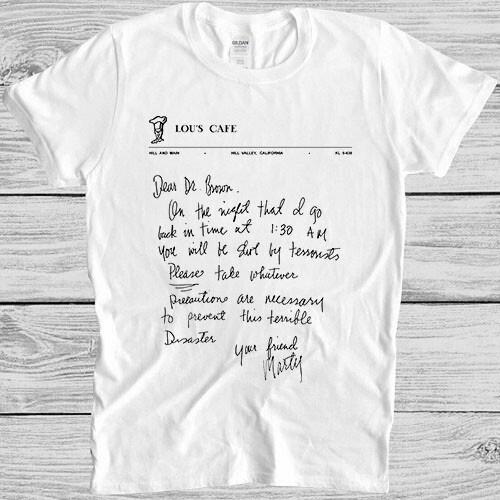 GILDAN
LOU'S CAFE
HILL AND MAIN • HILL VALLEY, CALIFORNIA •
Dear Dr. Brown.
On the night that I go
back in time at 1:30 AM
you will be shot by terrorists
Please take whatever
precautions are necessary
to prevent this terrible
Disaster
Your friend
Marty